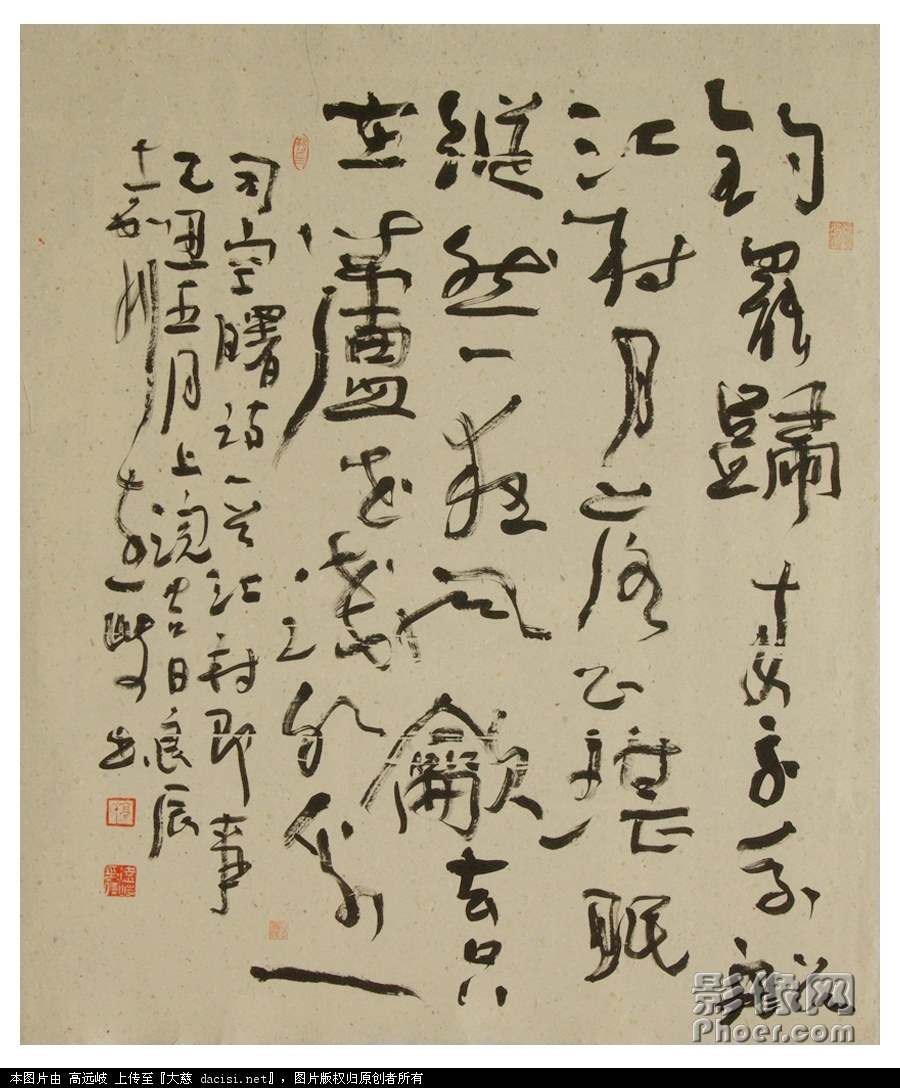 釣罷歸來不系船
江村月落正堪眠
縱然一夜風龡去只
在蘆花淺水邊
司空曙詩一首江村即事
乙丑五月上浣吉日良辰
遠岐書
影像网
Phoer.com
本图片由 高远岐 上传至『大慈 dacisi.net』，图片版权归原创者所有